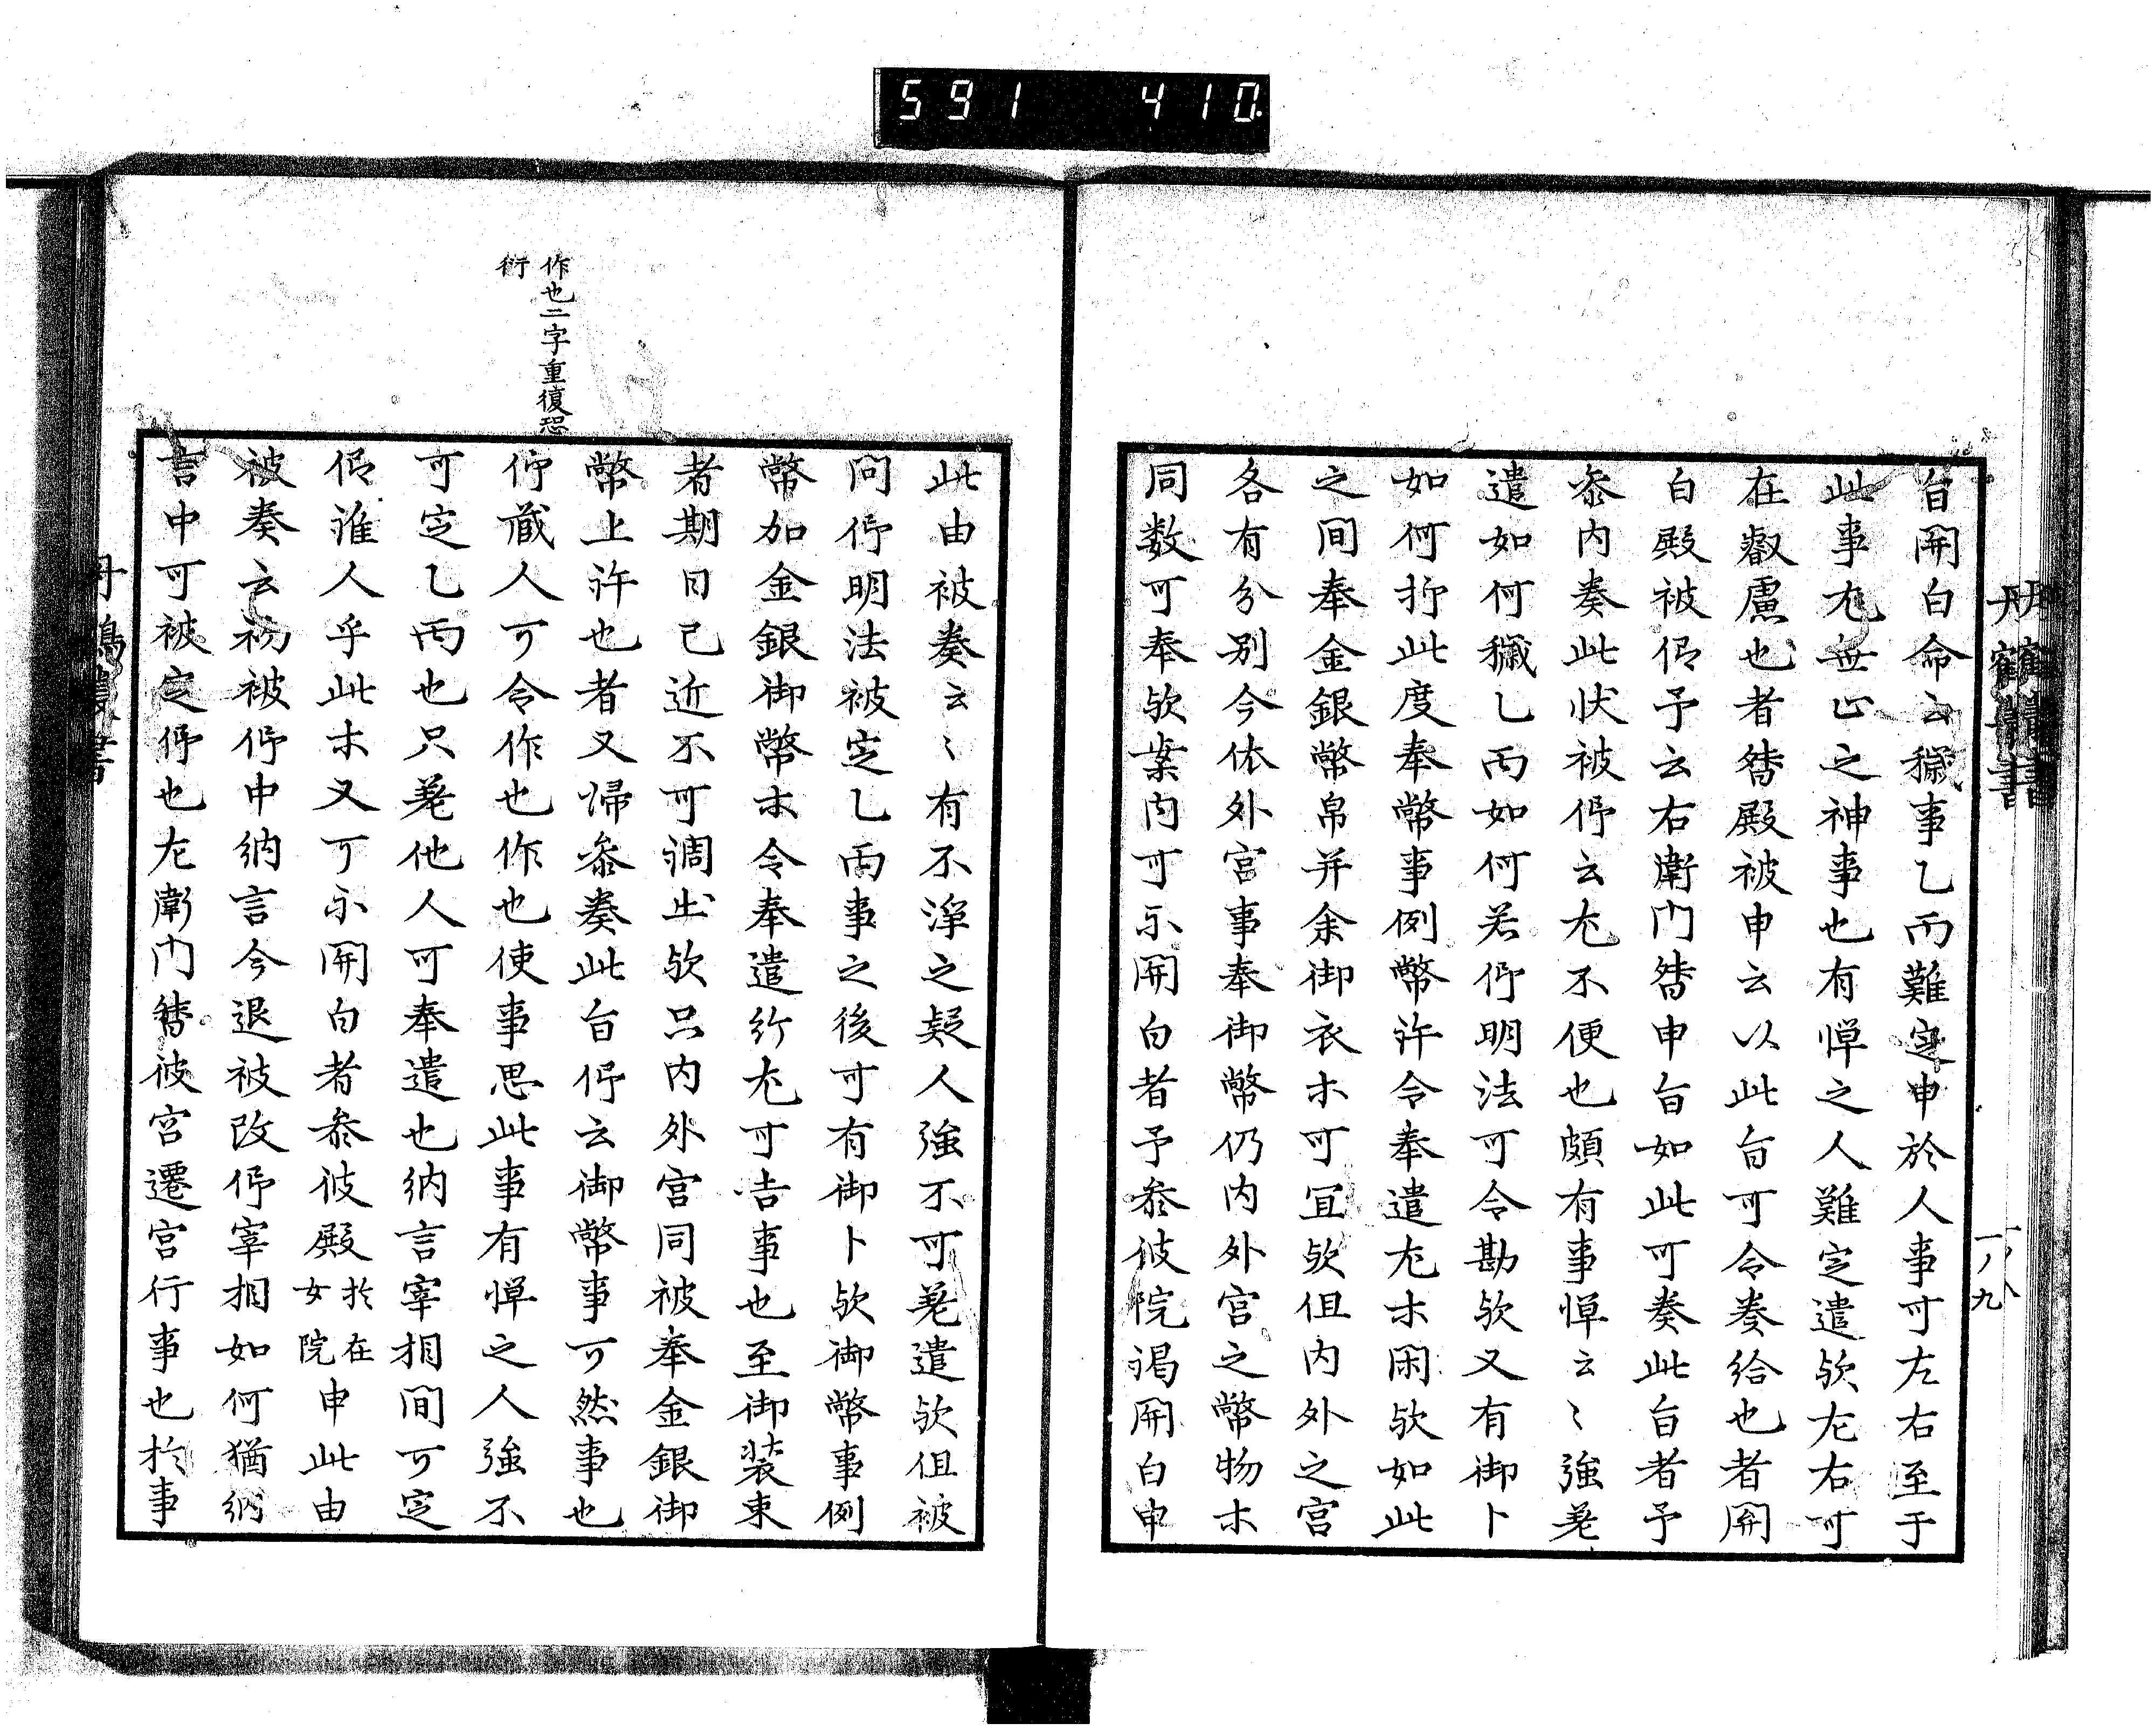 591 410
旨関白命云穢事乙而難定申於人事可左右至于
此事尤無止之神事也有憚之人難定遣欤左右可
在叡慮也者督殿被申云以此旨可令奏給也者関
白殿被仰予云右衛門督申旨如此可奏此旨者予
参内奏此状被仰云尤不便也頗有事憚云〻強差
遣如何穢乙丙如何若仰明法可令勘欤又有御卜
如何抑此度奉幣事例幣許令奉遣尤ホ閑欤如此
之間奉金銀幣帛并余御衣ホ可冝欤但内外之宮
各有分別今依外宮事奉御幣仍内外宮之幣物ホ
同数可奉欤案内可示関白者予参彼院謁関白申
丹鶴叢書
此由被奏云〻有不浄之疑人強不可差遣欤但被
問仰明法被定乙丙事之後可有御卜欤御幣事例
幣加金銀御幣ホ令奉遣給尤可吉事也至御装束
者期日已近不可調出欤只内外宮同被奉金銀御
幣上許也者又帰参奏此旨仰云御幣事可然事也
仰蔵人可令作也作也使事思此事有憚之人強不
可定乙丙也只差他人可奉遣也納言宰相間可定
仰誰人乎此ホ又可示関白者参彼殿於在女院申此由
被奏云初被仰中納言今退被改仰宰相如何猶納
言中可被定仰也左衛門督彼宮遷宮行事也於事
作也二字重復恐
衍